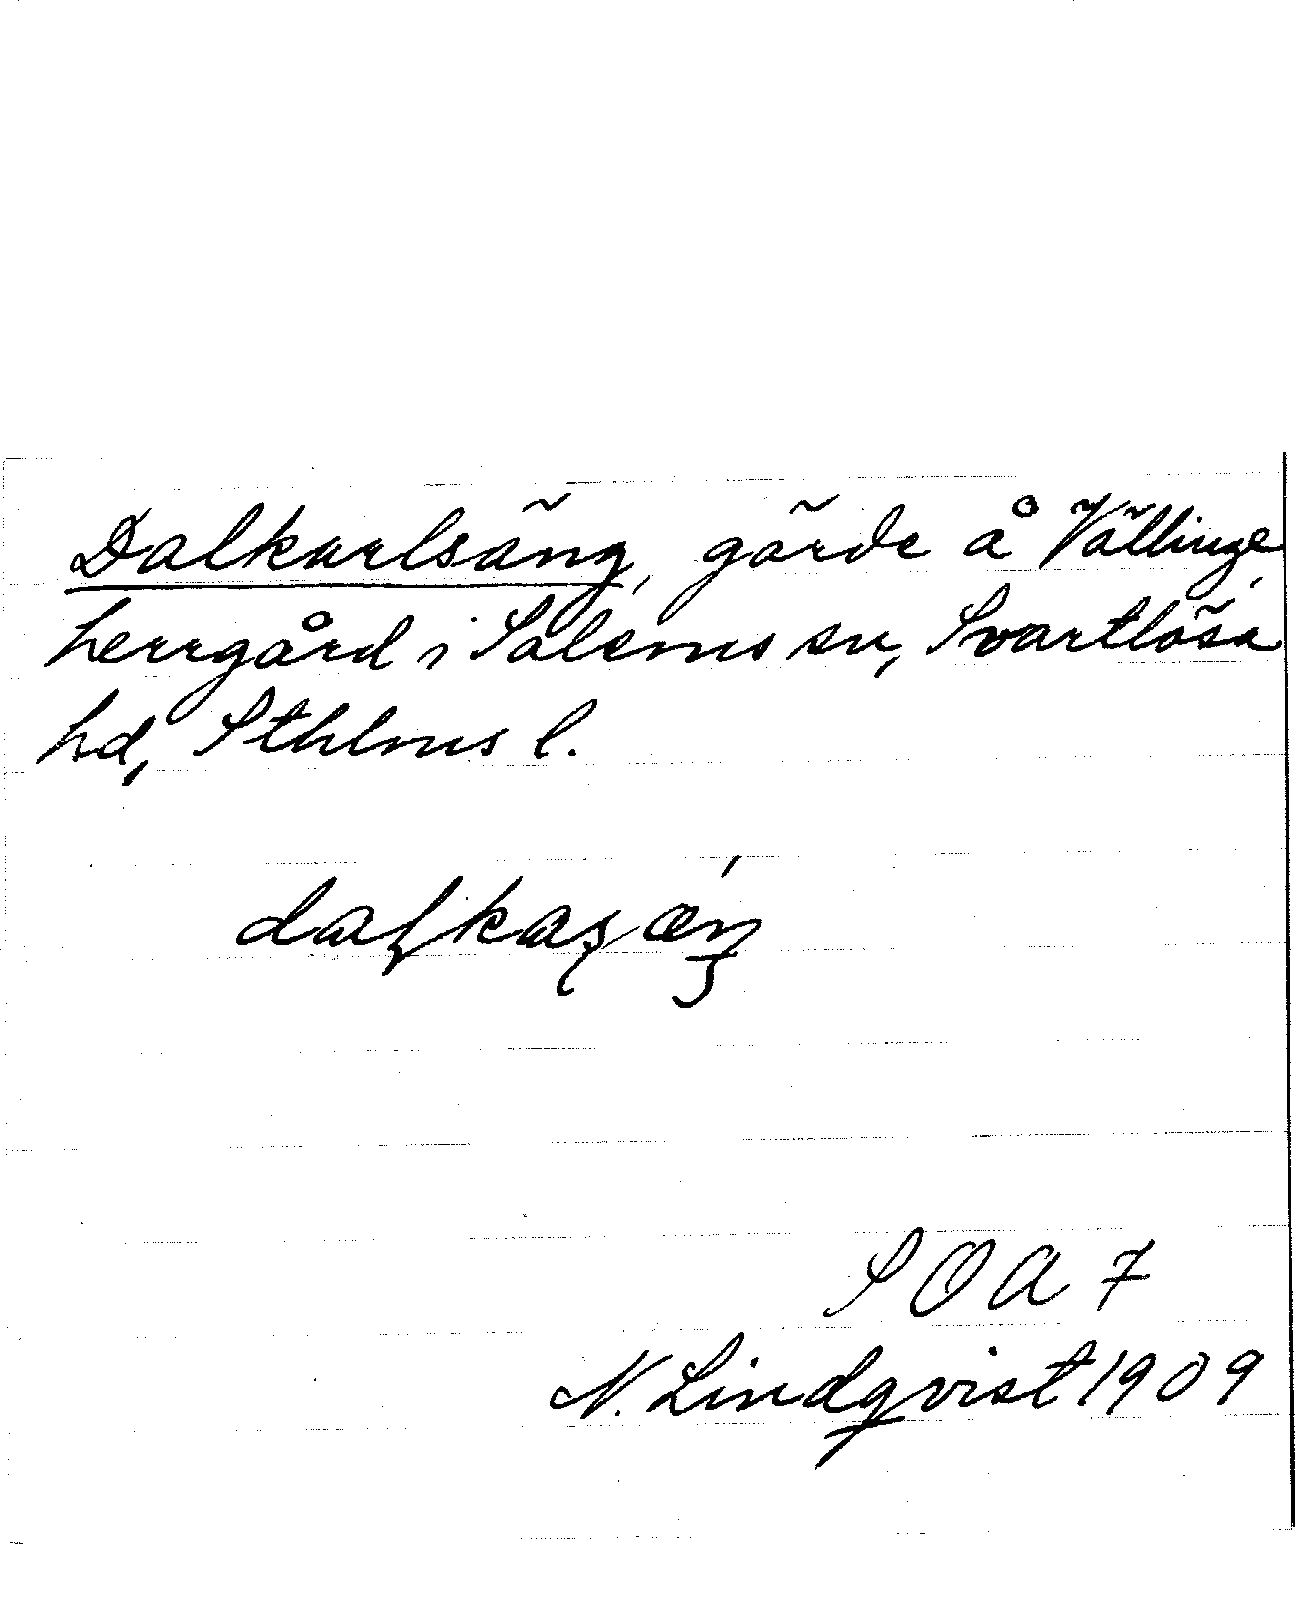 Dalkarlsäng, gärde å Vällinge
herrgård i Salems sn, Svartlösa
hd, Sthlms l.
SOA 7
N. Lindqvist 1909